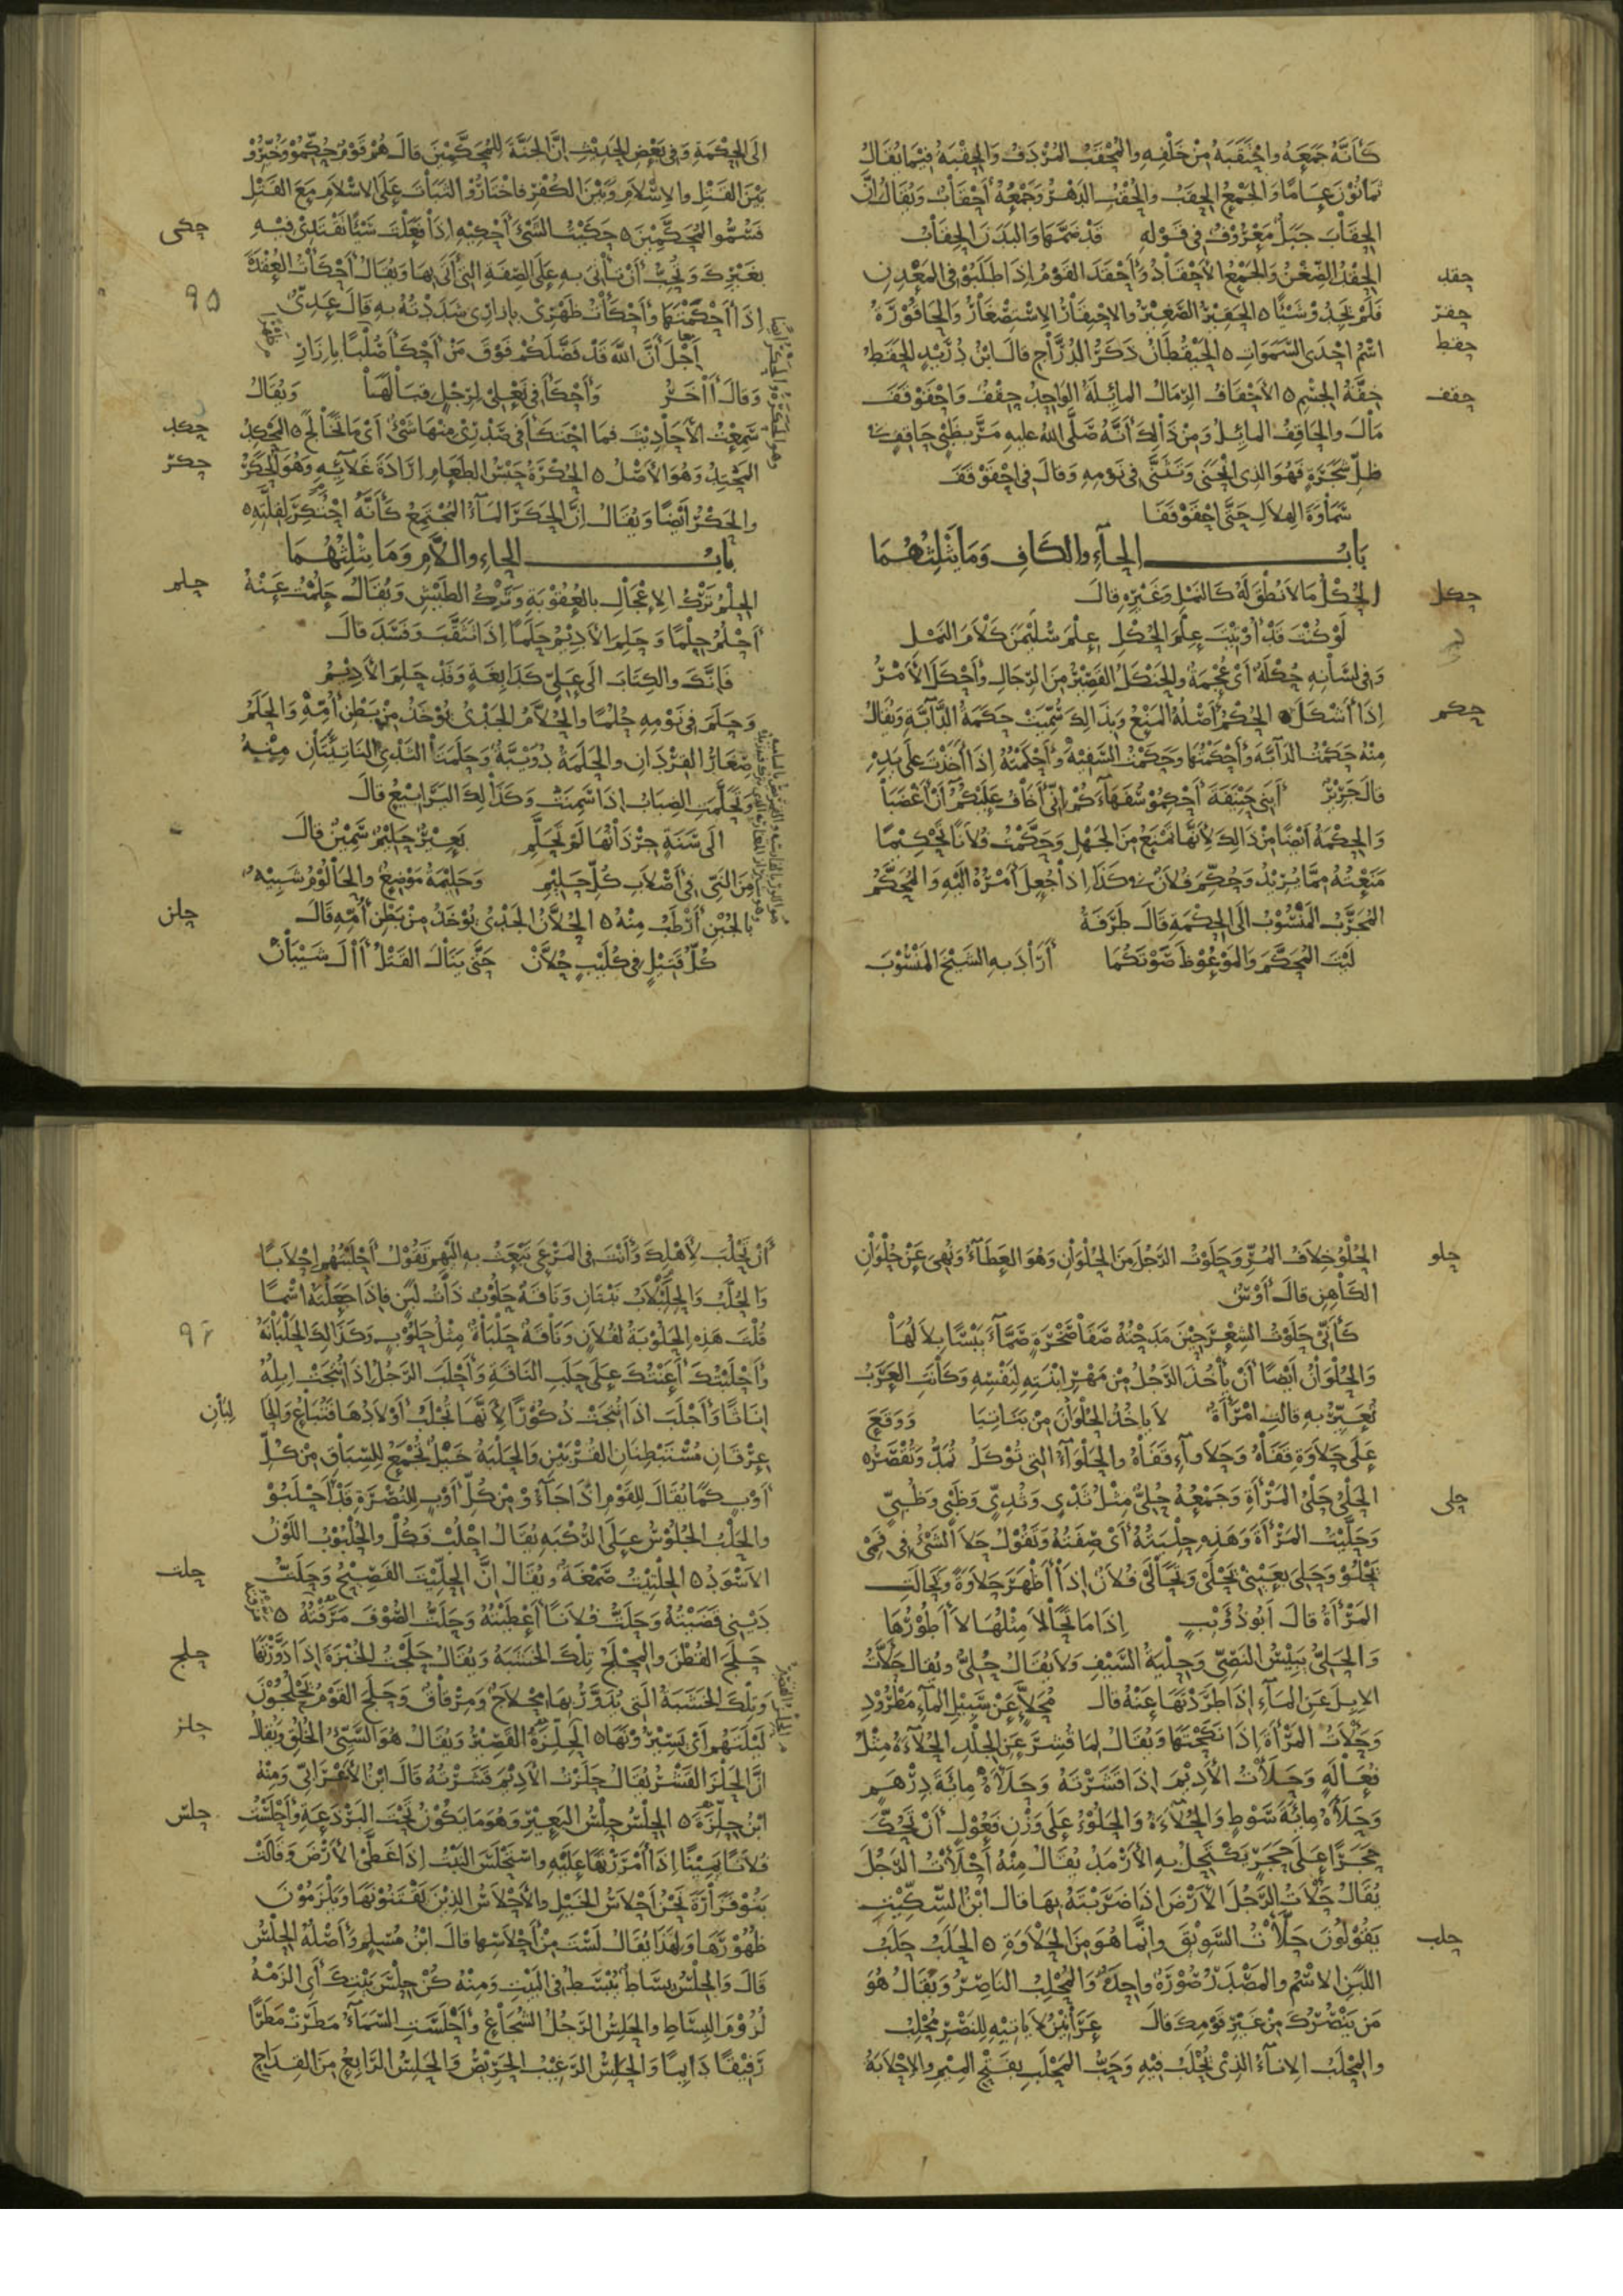 كَأَنَّهُ جَمَعَهُ واحْتَقَبَهُ مِنْ خَلْفِهِ والمُحْقَبُ المُرْدَفُ والحِقْبَةُ فِيمَا يُقَالُ
ثمَانُوْنَ عَامًا وَالجَمْعُ الحِقَبُ والحُقْبُ الدَهْرُ وَجَمْعُهُ أَحْقَابٌ وَيُقَالُ انَّ
الحِقَابَ جَبَلٌ مَعْرُوْفٌ فِى قَوْلِهِ قَدْ ضَمَّهَا وَالبَدَنَ الحِقَابُ
حقد
الحِقْدُ الضِّغْنُ وَالجَمْعُ الأَحْقَادُ وَأَحْقَدَ القَوْمُ اِذَا طَلَبُوْا فِى المَعْدِنِ
حقر
فَلَمْ يَجِدُوْا شَيْئًا ٥ الحَقِيْرُ الصَّغِيْرُ والاِحْتِقَارُ الاِسْتِصْغَارُ وَالحَاقُوْرَةُ
حقط
اسْمُ اِحْدَى السَّمَوَاتِ ٥ الحَيْقُطَانُ ذَكَرُ الدُرَّاجِ قالَ ابْنُ دُرَيْدٍ الحَقَطُ
حقف
خِفَّةُ الجِسْمِ ٥ الأَحْقَافُ الرِّمَالُ المائِلَةُ الوَاحِدُ حِقْفٌ وَاحْقَوْقَفَ
مَالَ والحَاقِفُ المائِلُ وَمِنْ ذَالِكَ أَنَّهُ صَلَّى اللهُ عليهِ مَرَّ بِظَبْىٍ حَاقِفٍ فى
ظِلِّ شَجَرَةٍ فَهُوَ الذِى انْحَنَى وَتَثَنَّى فِى نَوْمِهِ وَقالَ فى احْقَوْقَفَ
سَمَاوَةَ الهِلاَلِ حَتَّى احْقَوْقَفَا
بَابُ الحَآءِ والكَافِ وَمَا يَثْلِثُهُمَا
حكل
الحُكْلُ مَا لاَ نُطْقَ لَهُ كَالنَمْلِ وَغَيْرِهِ قالَ
لَوْ كُنْتَ قَدْ أُوْتِيْتَ عِلْمَ الحُكْلِ عِلْمَ سُلَيْمنَ كَلاَمَ النَمْلِ
وَفِى لِسَانِهِ حُكْلَةٌ أَىْ عُجْمَةٌ والحَنْكَلُ القَصِيْرُ مِنَ الرِّجَالِ وأَحْكَلَ الأَمْرُ
حكم
اِذَا أَشْكَلَ ٥ الحُكْمُ أَصْلُهُ المَنْعُ وَبِذَالِكَ سُمِّيَتْ حَكَمَةُ الدَّآبَّةِ وَيُقَالُ
مِنْهُ حَكَمْتُ الدَآبَّةَ وأَحْكَمْتُهَا وحَكَمْتُ السَّفِيْهَ وأَحْكَمْتُهُ اِذَا أَخَذْتَ عَلَى يَدِهِ
قالَ جَرِيْرٌ أَبَنِى حَنِيْفَةَ أَحْكِمُوْا سُفَهَآءَكُمْ اِنّى أَخَافُ عَلَيْكُمُ أَنْ أَغْضَبَا
وَالحِكْمَةُ اَيْضًا مِنْ ذَالِكَ لأَنَّهَا تَمْنَعُ مِنَ الجَهْلِ وَحَكَّمْتُ فُلاَنًا تَحْكِيْمًا
مَنَعْتُهُ مِمَّا يُرِيْدُ وَحُكِّمَ فُلاَنٌ فى كَذَا اِذَا جُعِلَ أَمْرُهُ الَيْهِ وَالمُحَكَّمُ
المُجَرَّبُ المَنْسُوْبُ الَى الحِكْمَةِ قَالَ طَرَفَةُ
لَيْتَ المُحَكَّمَ وَالمَوْعُوْظَ صَوْتَكُمَا أَرَادَ بِهِ الشَيْخَ المَنْسُوْبَ
الَى الحِكْمَةِ وَفِى بَعْضِ الحَدِيْثِ اِنَّ الجَنَّةَ لِلمُحَكَّمِيْنَ قالَ هُمْ قَوْمٌ حُكِّمُوْا وَخُيِّرُوْا
بَيْنَ القَتْلِ والاِسْلاَمِ وَبَيْنَ الكُفْرِ فاخْتَارُوْا الثَبَاتَ عَلَى الاِسْلاَمِ مَعَ القَتْلِ
حكى
فَسُمُّوا المُحَكَّمِيْنَ ٥ حَكَيْتُ الشَّىْءَ أَحْكِيْهِ اِذَا فَعَلْتَ شَيْئًا تَقْتَدِىْ فِيْهِ
بِغَيْرِكَ وَتُحِبُّ أَنْ تَأْتِىَ بِهِ عَلَى الصِفَةِ التى أَتَى بِهَا وَيُقَالُ أَحْكَأْتُ العُقْدَةَ
٩٥
اِذَا أَحْكَمْتَهَا وأَحْكَأْتُ ظَهْرِىْ بِاِزَارِى شَدَدْتُهُ بِهِ قَالَ عَدِىٌّ
أَجْلَ أَنَّ اللهَ قَدْ فَضَّلَكُمْ فَوْقَ مَنْ أَحْكَأَ صُلْبًا بِاِزَارِ
وَقالَ أَخَرُ وَأَحْكَأَ فى نَعْلٍ لِرِجْلٍ قِبَالَهَا وَيُقَالُ
حكد
سَمِعْتُ الأَحَادِيْثَ فَمَا احْتَكَأَ فى صَدْرِىْ مِنْهَا شَىْءٌ أَىْ مَا تَخَالَجَ ٥ المَحْكِدُ
حكر
المَحْتِدُ وَهُوَ الأَصْلُ ٥ الحُكْرَةُ حَبْسُ الطَعَامِ اِرَادَةَ غَلاَئِهِ وَهُوَ الحَكَرُ
والحَكْرُ أَيْضًا وَيُقَالُ اِنَّ الحَكَرَ المَآءُ المُجْتَمِعُ كَأَنَّهُ احْتُكِرَ لِقِلَّتِهِ ٥
بابُ الحاءِ واللاَّمِ وَمَا يَثْلِثُهُمَا
حلم
الحِلْمُ تَرْكُ الاِعْجَالِ بِالعُقُوْبَةِ وَتَرْكُ الطَيْشِ وَيُقَالُ حَلُمْتُ عَنْهُ
أَحْلُمُ حِلْمًا وَحَلِمَ الأَدِيْمُ حَلَمًا اِذَا تَثَقَّبَ وَفَسَدَ قالَ
فَاِنَّكَ والكِتَابَ الَى عَلِىٍّ كَدَابِغَةٍ وَقَدْ حَلِمَ الأَدِيْمُ
وَحَلَمَ فى نَوْمِهِ حُلْمًا والحُلاَّمُ الجَدْىُ يُؤْخَذُ مِنْ بَطْنِ أُمِّهِ وَالحَلَمُ
صِغَارُ القِرْدَانِ والحَلَمَةُ دُوَيْبَّةٌ وَحَلَمَتَا الثَدْىِ النَاتِئَتَانِ مِنْهُ
وَتَحَلَّمَتِ الضِبَابُ اِذَا سَمِنَتْ وَكَذَالِكَ اليَرَابِيْعُ قالَ
الَى سَنَةٍ جِرْذَانُهَا لَمْ تَحَلَّمِ بَعِيْرٌ حَلِيْمٌ سَمِيْنٌ قالَ
مِنَ النَّىِّ فى أَصْلاَبِ كُلِّ حَلِيْمِ وَحَلِيْمَةُ مَوْضِعٌ والحَالُوْمُ شَبِيْهٌ
حلن
بالجُبْنِ أَرْطَبُ مِنْهُ ٥ الحُلاَّنُ الجَدْىُ يُؤْخَذُ مِنْ بَطْنِ أُمِّهِ قَالَ
كُلُّ قَتِيْلٍ فى كُلَيْبٍ حُلاَّنْ حَتَّى يَنَالَ القَتْلُ أَالَ شَيْبَانْ
حلو
الحُلْوُ خِلاَفُ المُرِّ وَحَلَوْتُ الرَجُلَ مِنَ الحُلْوَانِ وَهُوَ العَطَآءُ وَنُهِىَ عَنْ حُلْوَانِ
الكَاهِنِ قالَ أَوْسٌ
كَأَنِّى حَلَوْتُ الشِعْرَ حِيْنَ مَدَحْتُهُ صَفَا صَخْرَةٍ صَمَّآءَ يَبْسًا بِلاَلُهَا
وَالحُلْوَانُ أَيْضًا أَنْ يَأْخُذَ الرَجُلُ مِنْ مَهْرِ ابْنَتِهِ لِنَفْسِهِ وَكَانَتِ العَرَبُ
تُعَيِّرُ بِهِ قالتِ امْرَأَةٌ لاَ يَاخُذُ الحُلْوَانَ مِنْ بَنَاتِيَا وَوَقَعَ
عَلَى حَلاَوَةِ قَفَاهُ وَحَلاَوآءِ قَفَاهُ والحَلْوَآءُ التِى تُوْكَلُ تُمَدُّ وَتُقْصَرُ ٥
حلى
الحَلْىُ حَلْىُ المَرْأَةِ وَجَمْعُهُ حُلِىٌّ مِثْلُ ثَدْىٍ وَثُدِىٍّ وَظَبْىٍ وَظُبِىٍّ
وَحَلَّيْتُ المَرْأَةَ وَهَذِهِ حِلْيَتُهُ أَىْ صِفَتُهُ وَتَقُوْلُ حَلاَ الشَىْءُ فِى فَمِىْ
يَحْلُوْ وَحَلِىَ بِعَيْنِىْ يَحْلَى وَتَحَالَى فُلاَنٌ اِذَا أَظْهَرَ حَلاَوَةً وَتَحَالَتِ
المَرْأَةُ قالَ أَبُوْ ذُؤَيْبٍ اِذَا مَا تَحَالَى مِثْلُهَا لاَ أَطُوْرُهَا
وَالحَلِىُّ يَبِيْسُ النَصِىِّ وَحِلْيَةُ السَّيْفِ وَلاَ يُقَالُ حُلِىٌّ ويُقالُ حَلأْتُ
الاِبِلَ عَنِ المَآءِ اِذَا طَرَدْتَهَا عَنْهُ قالَ مُحَلأٍَّ عَنْ سَبِيْلِ المَآءِ مَطْرُوْدِ
وَحَلأْتُ المَرْأَةَ اِذَا نَكَحْتَهَا وَيُقَالُ لِمَا قُشِرَ عَنِ الجِلْدِ الحُلاَءَةُ مِثْلُ
فُعَالَةٍ وَحَلأْتُ الأَدِيْمَ اِذَا قَشَرْتَهُ وَحَلأَهُ مِائَةَ دِرْهَمٍ
وَحَلأَهُ مِائَةَ سَوْطٍ وَالحُلاَءَةُ وَالحَلُوْءُ عَلَى وَزْنِ فَعُوْلٍ أَنْ تَحُكَّ
حَجَرًا عَلَى حَجَرٍ يَكْتَحِلُ بِهِ الأَرْمَدُ يُقَالُ مِنْهُ أَحْلأْتُ الرَجُلَ
يُقَالُ حَلأْتُ الرَجُلَ الاَرْضَ اِذَا ضَرَبْتَهُ بِهَا قالَ ابْنُ السِّكِّيْتِ
حلب
يَقُوْلُوْنَ حَلأْتُ السَّوِيْقَ وانَّما هُوَ مِنَ الحَلاَوَةِ ٥ الحَلَبُ حَلَبُ
اللَبَنِ الاسْمُ والمَصْدَرُ صُوْرَةٌ واحِدَةٌ وَالمُحْلِبُ النَاصِرُ وَيُقَالُ هُوَ
مَنْ يَنْصُرُكَ مِنْ غَيْرِ قَوْمِكَ قالَ عَرَانِيْنُ لاَ يَاتِيْهِ لِلنَصْرِ مُحْلِبُ
والمِحْلَبُ الاِنَآءُ الذِىْ يُحْلَبُ فِيْهِ وَحَبُّ المَحْلَبِ بِفَتْحِ المِيْمِ والاِحْلاَبَةُ
أَنْ تَحْلُبَ لأَهْلِكَ وَأَنْتَ فى المَرْعَى تَبْعَثُ بِهِ الَيْهِمْ تَقُوْلُ أَحْلَبْتُهُمْ اِحْلاَبًا
وَالحُلَّبُ وَالحِلِبْلاَبُ نَبْتَانِ وَنَاقَةٌ حَلُوْبٌ ذَاتُ لَبَنٍ فَاِذَا جَعَلْتَهُ اسْمًا
٩٦
قُلْتَ هَذِهِ الحَلُوْبَةُ لِفُلاَنٍ وَنَاقَةٌ حَلْبَاةٌ مِثْلُ حَلُوْبٍ وَكَذَالِكَ الحَلْبَانَةُ
وَأَحْلَبْتُكَ أَعَنْتُكَ عَلَى حَلَبِ النَاقَةِ وَأَحْلَبَ الرَجُلُ اِذَا نُتِجَتْ اِبِلُهُ
اِنَاثًا وَأَجْلَبَ اِذَا نُتِجَتْ ذُكُوْرًا لأَنَّهَا تُجْلَبُ أَوْلاَدُهَا فَتُبَاعُ وَالحَا
لِبَانِ
عِرْقَانِ مُسْتَبْطِنَانِ القُرْبَيْنِ وَالحَلْبَةُ خَيْلٌ تُجْمَعُ لِلسِّبَاقِ مِنْ كُلِّ
أَوْبٍ كَمَا يُقَالُ لِلقَوْمِ اِذَا جَآءُوْا مِنْ كُلِّ أَوْبٍ لِلنُصْرَةِ قَدْ أَحْلَبُوْا
والحَلْبُ الجُلُوْسُ عَلَى الرُكْبَةِ يُقَالُ احْلُبْ فَكُلْ والحُلْبُوْبُ اللَوْنُ
حلت
الأَسْوَدُ ٥ الحِلْتِيْتُ صَمْغَةٌ وَيُقَالُ اِنَّ الحِلِّيْتَ الفَصِيْحُ وَحَلَتُّ
دَيْنِى قَضَيْتُهُ وَحَلَتُّ فُلاَنًا أَعْطَيْتُهُ وَحَلَتُّ الصُّوْفَ مَرَقْتُهُ ٥
حلج
حَلَجَ القُطْنَ والمِحْلَجُ تِلْكَ الخَشَبَةُ وَيُقَالُ حَلَجْتُ الخُبْزَةَ اِذَا دَوَّرْتَهَا
وَتِلْكَ الخَشَبَةُ الَّتِى يُدَوَّرُ بِهَا مِحْلاَجٌ وَمِرْقَاقٌ وَحَلَجَ القَوْمُ يَحْلِجُوْنَ
حلز
لَيْلَتَهُمْ أَىْ يَسِيْرُوْنَهَا ٥ الحِلِّزَةُ القَصِيْرُ وَيُقَالُ هُوَ السَّيِّئُ الخُلُقِ وَيُقَالُ
اِنَّ الحَلْزَ القَشْرُ يُقَالُ حَلَزْتُ الأَدِيْمَ قَشَرْتُهُ قَالَ ابْنُ الأَعْرَابِّى وَمِنْهُ
حلس
ابْنُ حِلِّزَةَ ٥ الحِلْسُ حِلْسُ البَعِيْرِ وَهُوَ مَا يَكُوْنُ تَحْتَ البَرْذَعَةِ وَأَحْلَسْتُ
فُلاَنًا يَمِيْنًا اِذَا أَمْرَرْتَهَا عَلَيْهِ وَاسْتَحْلَسَ النَبْتُ اِذَا غَطَّى الأَرْضَ وَقَالَتْ
بَنُوْ فَزَارَةَ نَحْنُ أَحْلاَسُ الخَيْلِ والأَحْلاَسُ الذِيْنَ يَقْتَنُوْنَهَا وَيَلْزَمُوْنَ
ظُهُوْرَهَا وَلِهَذَا يُقَالُ لَسْتَ مِنْ أَحْلاَسِهَا قالَ ابْنُ مُسْلِمٍ وَأَصْلُهُ الحِلْسُ
قَالَ وَالحِلْسُ بِسَاطٌ يُبْسَطُ فى البَيْتِ وَمِنْهُ كُنْ حِلْسَ بَيْتِكَ أَىِ الزَمْهُ
لُزُوْمَ البِسَاطِ والحَلِسُ الرَجُلُ الشُجَاعُ وَأَحْلَسَتِ السَّمَآءُ مَطَرَتْ مَطَرًا
رَقِيْقًا دَائِمًا وَالحَلِسُ الرَغِيْبُ الحَرِيْصُ والحِلْسُ الرَابِعُ مِنَ القِدَاحِ